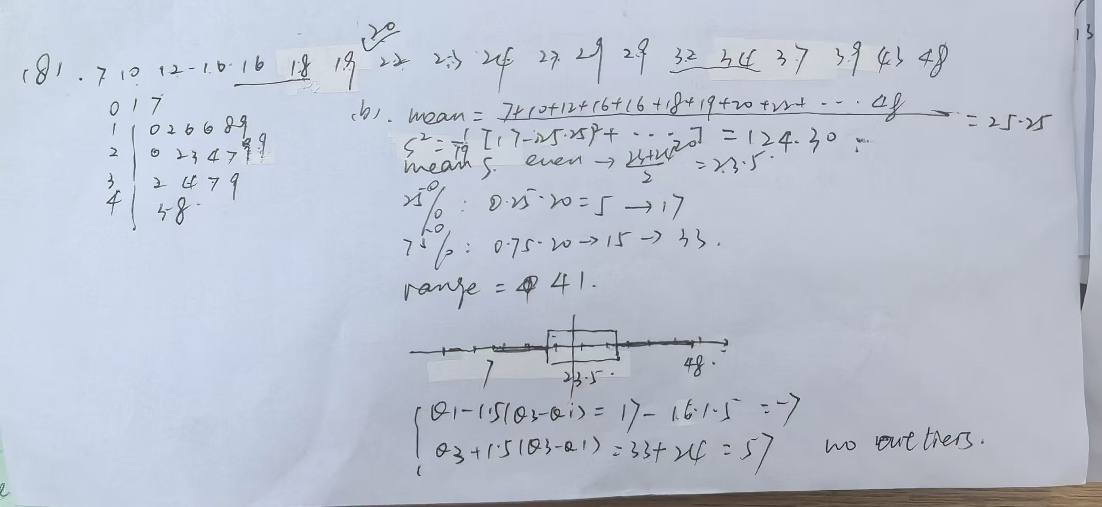 20
(8). 7 10 12 - 16 16 18 19 22 23 24 27 29 29 32 34 37 39 43 48
0 | 7
1 | 0 2 6 6 8 9
2 | 0 2 3 4 7 9 9
3 | 2 4 7 9
4 | 3 8.
(b). mean = 7+10+12+16+16+18+19+20+22+ ... 48 = 25.25
S² = 1/19 [(7-25.25)²+ ... 20] = 124.30
mean S. even → 23+24/2 = 23.5
25% : 0.25·20 = 5 → 17
75% : 0.75·20 → 15 → 33.
range = 41.
7 23.5. 48.
Q1-1.5(Q3-Q1) = 17 - 16·1.5 = -7
Q3+1.5(Q3-Q1) = 33+24 = 57 no outliers.
13